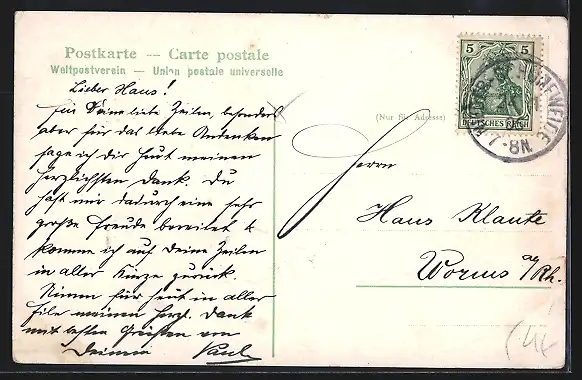 Postkarte — Carte postale
Weltpostverein — Union postale universelle
Lieber Hans!
Für Deine lieben Zeilen, besonders
aber für das liebe Andenken
sage ich dir heut meinen
herzlichsten Dank. Du
hast mir dadurch eine sehr
große Freude bereitet &
komme ich auf Deine Zeilen
in aller Kürze zurück.
Nimm für heut in aller
Eile meinen herzl. Dank
mit besten Grüßen von
Deinem Paul
(Nur für Adresse)
5 5
DEUTSCHES REICH
7-8N.
Herrn
Hans Klaute
Worms a/Rh.